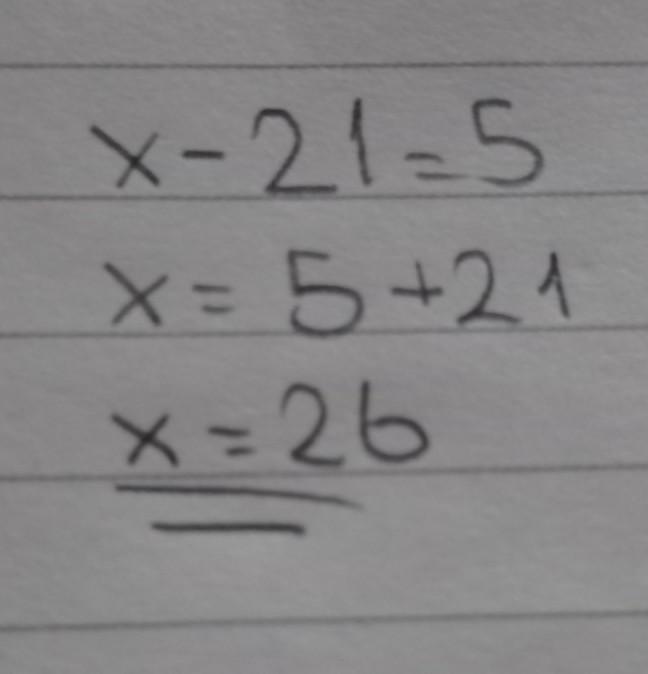 x - 21 = 5
x = 5 + 21
x = 26